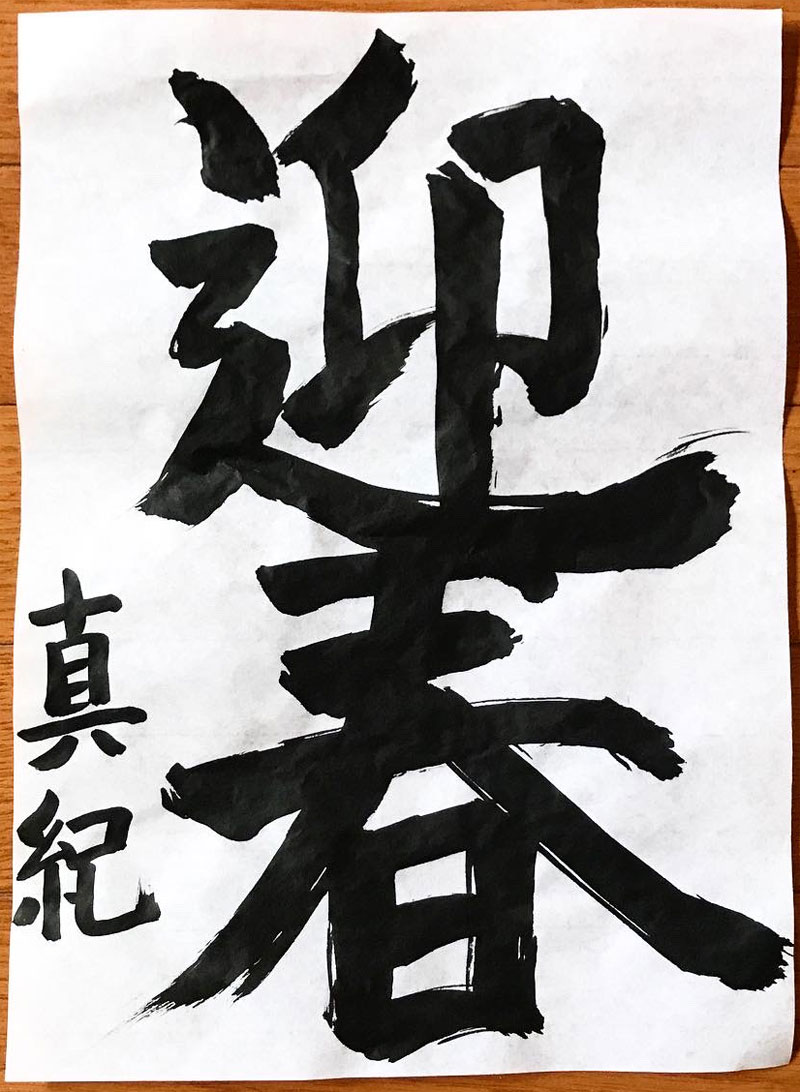 迎春
真紀